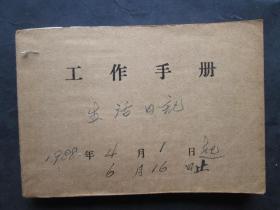 工作手册
生活日记
1988年4月1日起
6月16日止